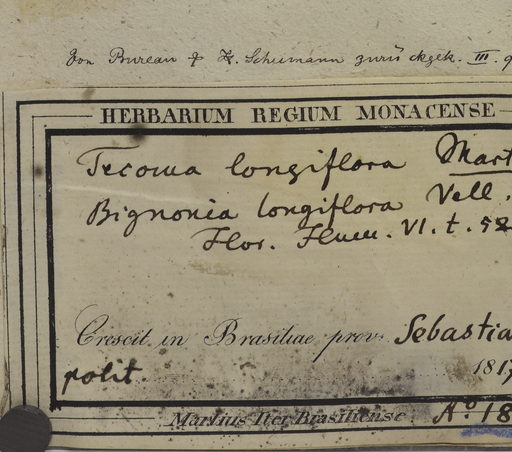 Von Bureau & K. Schumann zurückgek. III. 9
HERBARIUM REGIUM MONACENSE
Tecoma longiflora Mart
Bignonia longiflora Vell.
Flor. Flum. VI. t. 52
Crescit in Brasiliae prov. Sebastia
polit. 1817
Martius Iter Brasiliense. No. 18